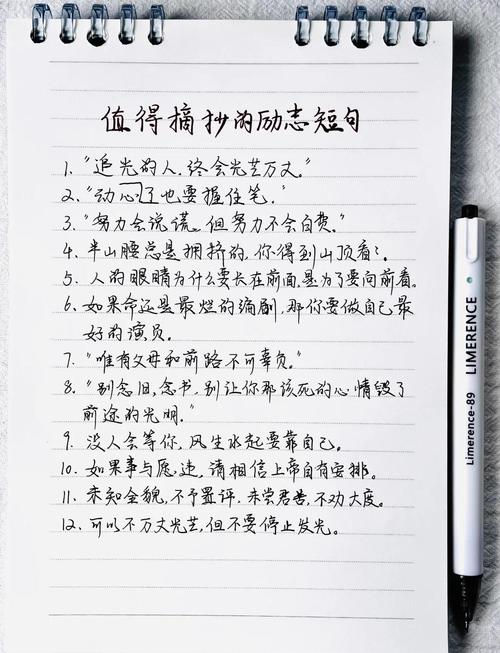 值得摘抄的励志短句
1. "追光的人,终会光芒万丈."
2. "动心了也要握住笔."
3. "努力会说谎,但努力不会白费."
4. 半山腰总是拥挤的,你得到山顶看看.
5. 人的眼睛为什么要长在前面,是为了要向前看。
6. 如果命运是最烂的编剧,那你要做自己最
好的演员.
7. "唯有父母和前路不可辜负."
8. "别念旧,念书,别让你那该死的心情毁了
前途的光明."
9. 没人会等你,风生水起要靠自己。
10. 如果事与愿违,请相信上帝自有安排.
11. 未知全貌,不予置评,未尝君苦,不劝大度.
12. 可以不万丈光芒,但不要停止发光。
LIMERENCE
Limerence-89